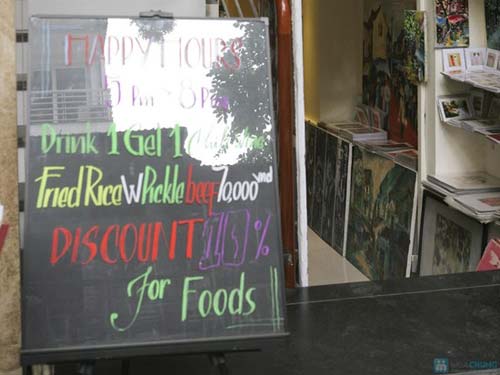 HAPPY HOURS
5 PM - 8 PM
Drink 1 Get 1
Fried Rice W Pickle beef 70,000 vnd
DISCOUNT 15%
For Foods
MUACHUNG